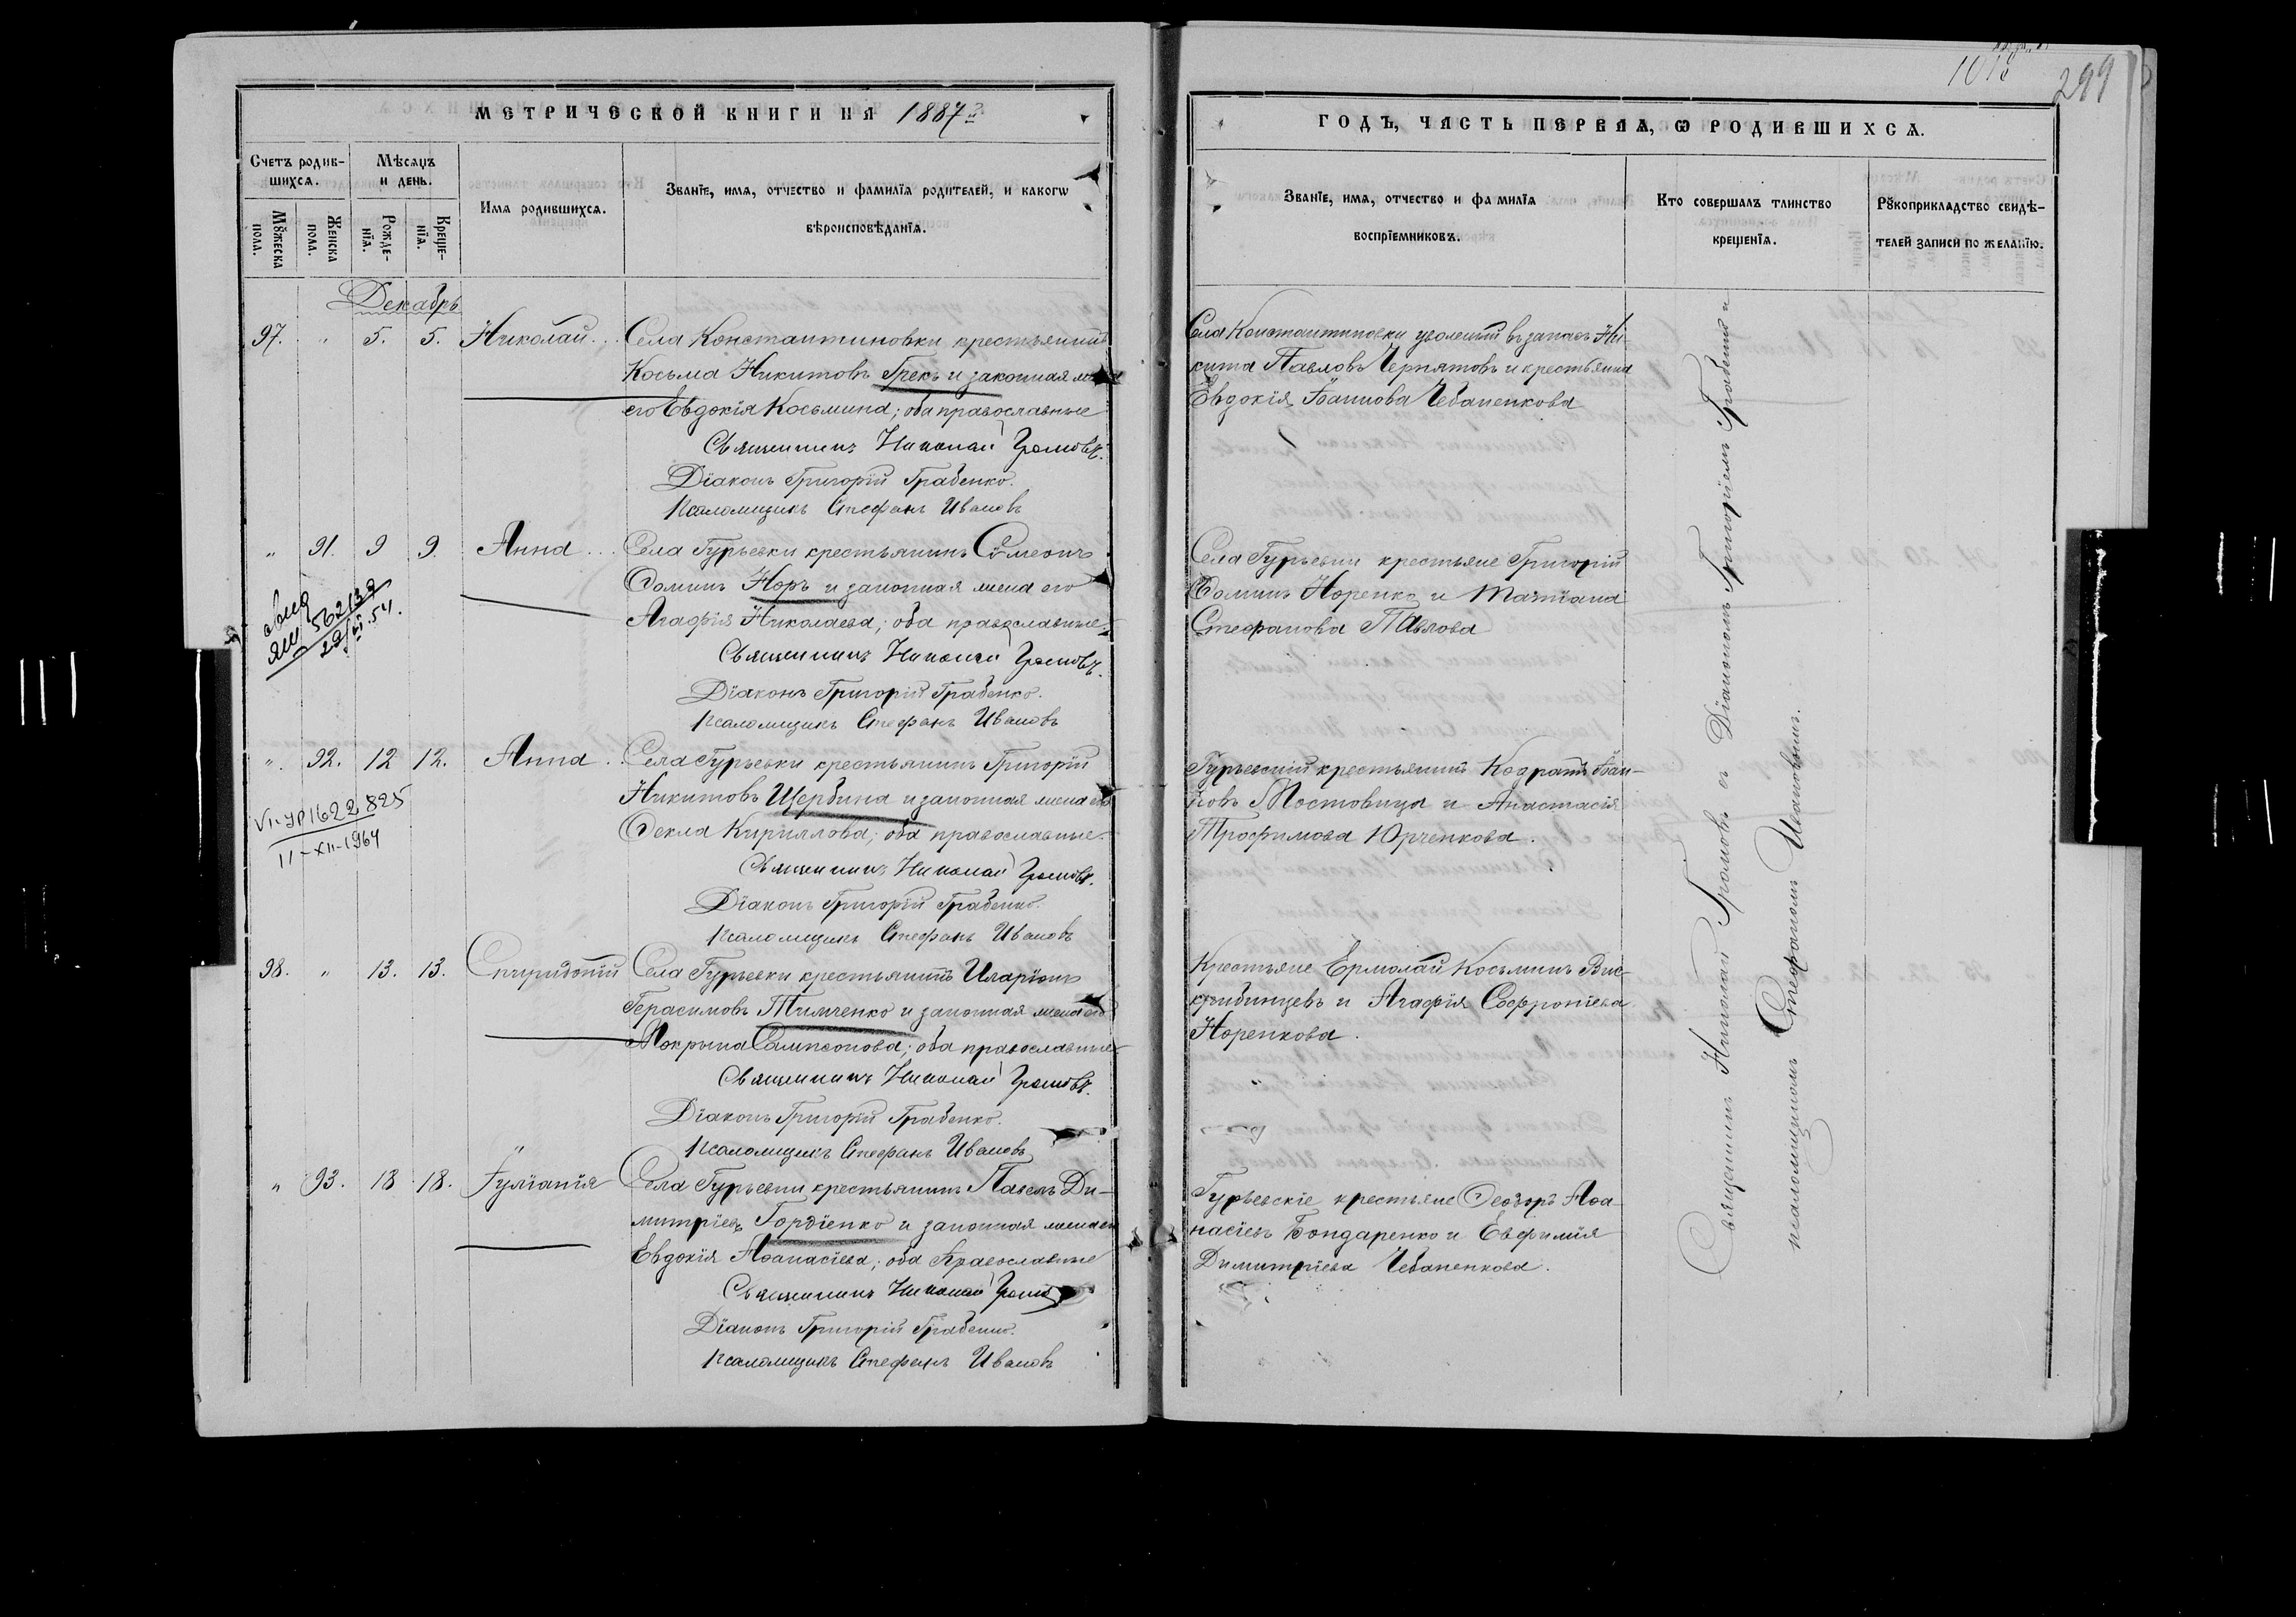 МЕТРИЧЕСКОЙ КНИГИ НА 1887й
Счетъ родив-
шихся.
Мѣсяцъ
и день.
Имя родившихся.
Званїе, имя, отчество и фамилїя родителей, и какогѡ
вѣроисповѣданїя.
Мꙋжеска
пола.
Женска
пола.
Рожде-
нїя.
Креще-
нїя.
Декабрь
97. " 5. 5. Николай. Села Константиновки крестьянинъ
Косьма Никитовъ Грекъ и законная жена
его Евдокія Косьмина; оба православные
Священникъ Николай Громовъ.
Діаконъ Григорій Грабенко.
Псаломщикъ Стефанъ Ивановъ
" 91. 9 9. Анна Села Гурьевки крестьянинъ Сѵмеонъ
Ѳоминъ Норъ и законная жена его
Агафія Николаева; оба православные.
Священникъ Николай Громовъ.
Діаконъ Григорій Грабенко.
Псаломщикъ Стефанъ Ивановъ
562139
". 92. 12 12. Анна Села Гурьевки крестьянинъ Григорій
Никитовъ Щербина и законная жена его
Ѳекла Кириллова; оба православные.
Священникъ Николай Громовъ.
Діаконъ Григорій Грабенко.
Псаломщикъ Стефанъ Ивановъ
VI-УР 1622825
11-XII-1964
98. " 13. 13. Спиридонъ Села Гурьевки крестьянинъ Иларіонъ
Герасимовъ Тимченко и законная жена его
Мокрына Сампсонова; оба православные
Священникъ Николай Громовъ.
Діаконъ Григорій Грабенко.
Псаломщикъ Стефанъ Ивановъ
" 93. 18 18. Іуліанія Села Гурьевки крестьянинъ Павелъ Ди-
митріевъ Гордіенко и законная жена его
Евдокія Аѳанасіева; оба православные
Священникъ Николай Громовъ
Діаконъ Григорій Грабенко.
Псаломщикъ Стефанъ Ивановъ
1013
299
ГОДЪ, ЧАСТЬ ПЕРВАЯ, Ѡ РОДИВШИХСЯ.
Званїе, имя, отчество и фамилїя
воспрїемниковъ.
Кто совершалъ таинство
крещенїя.
Рꙋкоприкладство свидѣ-
телей записи по желанїю.
Села Константиновки уволенный въ запасъ Ни-
кита Павловъ Чернятовъ и крестьянка
Евдокія Іоаннова Чебаненкова
Села Гурьевки крестьяне Григорій
Ѳоминъ Норенко и Татіана
Стефанова Павлова
Гурьевскій крестьянинъ Кодратъ Іоан-
новъ Мостовица и Анастасія
Трофимова Юрченкова.
Крестьяне Ермолай Косьминъ Вис-
крибинцевъ и Агафія Софроніева
Норенкова.
Гурьевскіе крестьяне Ѳеодоръ Аѳа-
насіевъ Бондаренко и Евфимія
Димитріева Чебаненкова.
Священникъ Николай Громовъ съ Діакономъ Григоріемъ Грабенко и
псаломщикомъ Стефаномъ Ивановымъ.